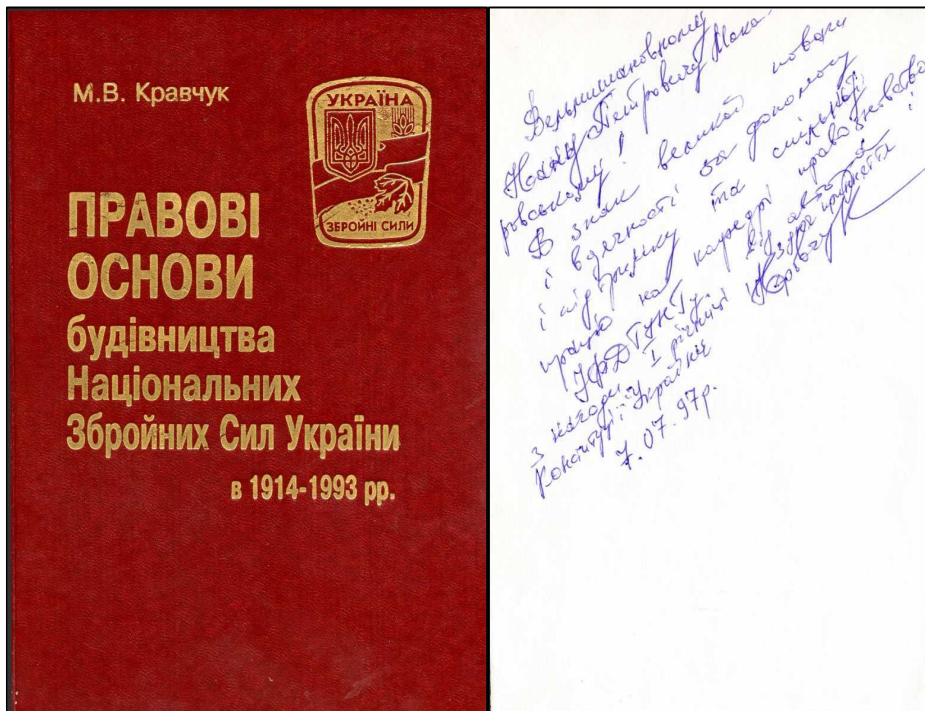 М.В. Кравчук
УКРАЇНА
ЗБРОЙНІ СИЛИ
ПРАВОВІ
ОСНОВИ
будівництва
Національних
Збройних Сил України
в 1914-1993 рр.
Вельмишановному
Івану Петровичу Мака-
ровському!
В знак великої поваги
і вдячності за допомогу
і підтримку та спільну
працю на кафедрі правознавства
УФЕІ від автора
з нагоди I річниці
Конституції України
7.07.97р.